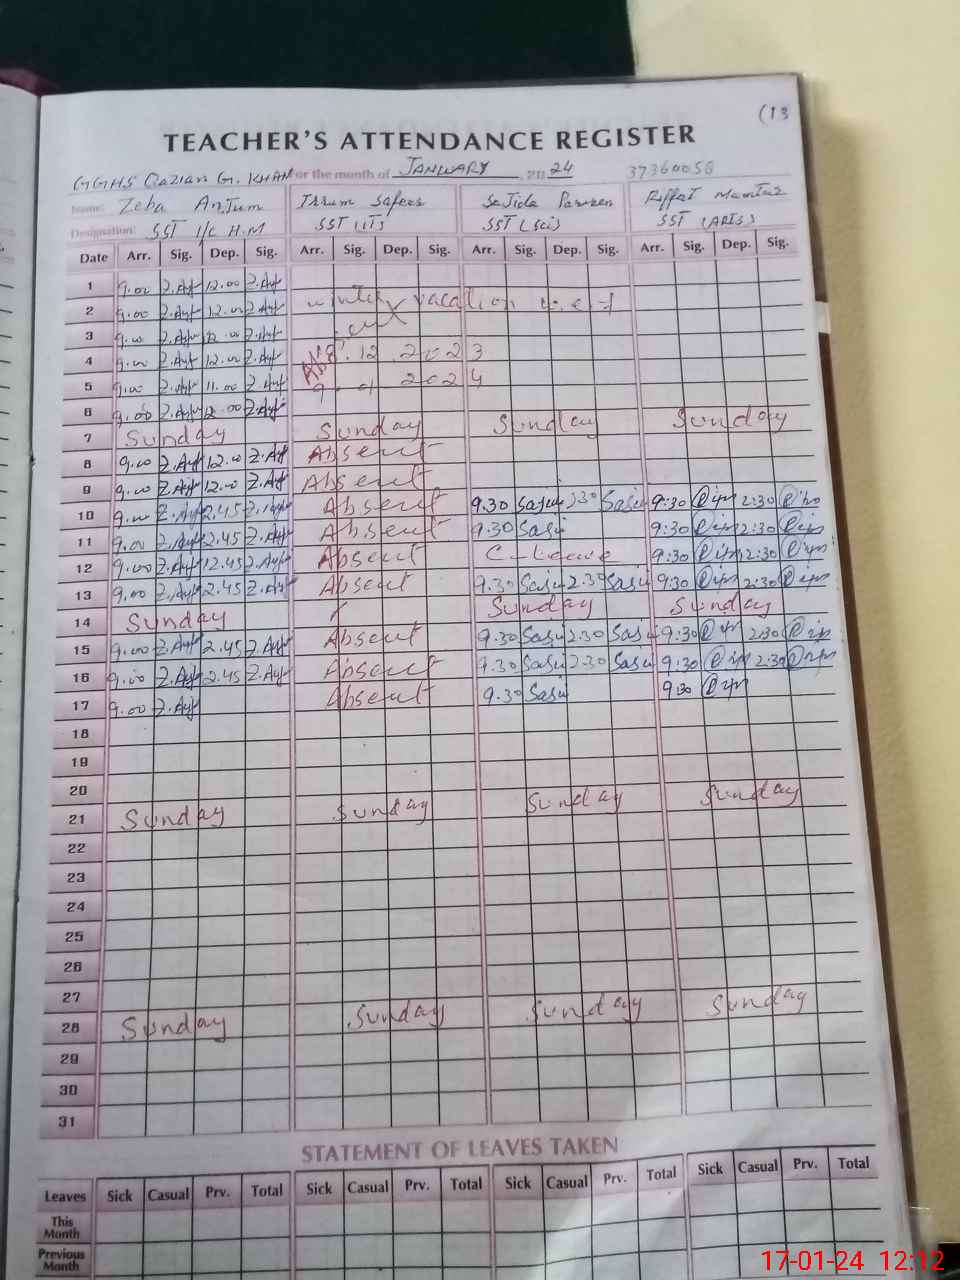 (13
TEACHER'S ATTENDANCE REGISTER
GGHS Qazian G. KHAN for the month of JANUARY, 2024 37360056
Name: Zeba Anjum Irrum Safeer Sajida Parveen Riffat Mumtaz
Designation: SST I/C H.M SST (IT) SST (Sci) SST (ARTS)
Date Arr. Sig. Dep. Sig. Arr. Sig. Dep. Sig. Arr. Sig. Dep. Sig. Arr. Sig. Dep. Sig.
1 9.00 Z.Ayt 12.00 Z.Ayt
2 9.00 Z.Ayt 12.00 Z.Ayt winter vacation w.e.f
3 9.00 Z.Ayt 12.00 Z.Ayt
4 9.00 Z.Ayt 12.00 Z.Ayt 12.2023
5 9.00 Z.Ayt 11.00 Z.Ayt 9.01 2024
6 9.00 Z.Ayt 12.00 Z.Ayt
7 Sunday Sunday Sunday Sunday
8 9.00 Z.Ayt 12.00 Z.Ayt Absent
9 9.00 Z.Ayt 12.00 Z.Ayt Absent
10 9.00 Z.Ayt 2.45 Z.Ayt Absent 9.30 Sasu 2.30 Sasu 9:30 2:30
11 9.00 Z.Ayt 2.45 Z.Ayt Absent 9.30 Sasu 9:30 2:30
12 9.00 Z.Ayt 12.45 Z.Ayt Absent C-Leave 9:30 2:30
13 9.00 Z.Ayt 2.45 Z.Ayt Absent 9.30 Sasu 2.30 Sasu 9:30 2:30
14 Sunday Sunday Sunday
15 9.00 Z.Ayt 2.45 Z.Ayt Absent 9.30 Sasu 2.30 Sasu 9:30 2:30
16 9.00 Z.Ayt 2.45 Z.Ayt Absent 9.30 Sasu 2.30 Sasu 9:30 2:30
17 9.00 Z.Ayt Absent 9.30 Sasu 9:30
18
19
20
21 Sunday Sunday Sunday Sunday
22
23
24
25
26
27
28 Sunday Sunday Sunday Sunday
29
30
31
STATEMENT OF LEAVES TAKEN
Leaves Sick Casual Prv. Total Sick Casual Prv. Total Sick Casual Prv. Total Sick Casual Prv. Total
This Month
Previous Month
17-01-24 12:12